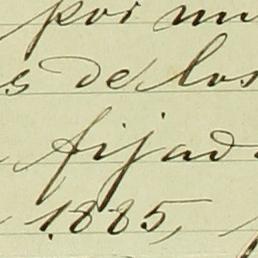 por mi
s de los
fijad
1885,